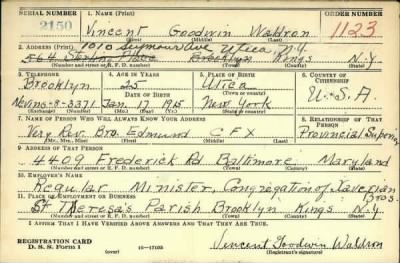 SERIAL NUMBER 1. NAME (Print) ORDER NUMBER
2150 Vincent Goodwin Waldron 1123
(First) (Middle) (Last)
2. ADDRESS (Print) 1010 Seymour Ave Utica, N.Y.
564 Sterling Place Brooklyn Kings N.Y
(Number and street or R. F. D. number) (Town) (County) (State)
3. TELEPHONE 4. AGE IN YEARS 5. PLACE OF BIRTH 6. COUNTRY OF CITIZENSHIP
Brooklyn 25 Utica
(Town or county)
Nevins-8-3371 Jan. 17 1915 New York U.S.A
(State or country)
7. NAME OF PERSON WHO WILL ALWAYS KNOW YOUR ADDRESS 8. RELATIONSHIP OF THAT PERSON
Very Rev. Bro. Edmund C F X Provincial Superior
(Mr., Mrs., Miss) (First) (Middle) (Last)
9. ADDRESS OF THAT PERSON
4409 Frederick Rd Baltimore Maryland
(Number and street or R. F. D. number) (Town) (County) (State)
10. EMPLOYER'S NAME
Regular Minister, Congregation of Xaverian Bros.
11. PLACE OF EMPLOYMENT OR BUSINESS
St Theresa's Parish Brooklyn Kings N.Y
(Number and street or R. F. D. number) (Town) (County) (State)
I AFFIRM THAT I HAVE VERIFIED ABOVE ANSWERS AND THAT THEY ARE TRUE.
REGISTRATION CARD
D. S. S. Form 1 (over) 16—17105 Vincent Goodwin Waldron